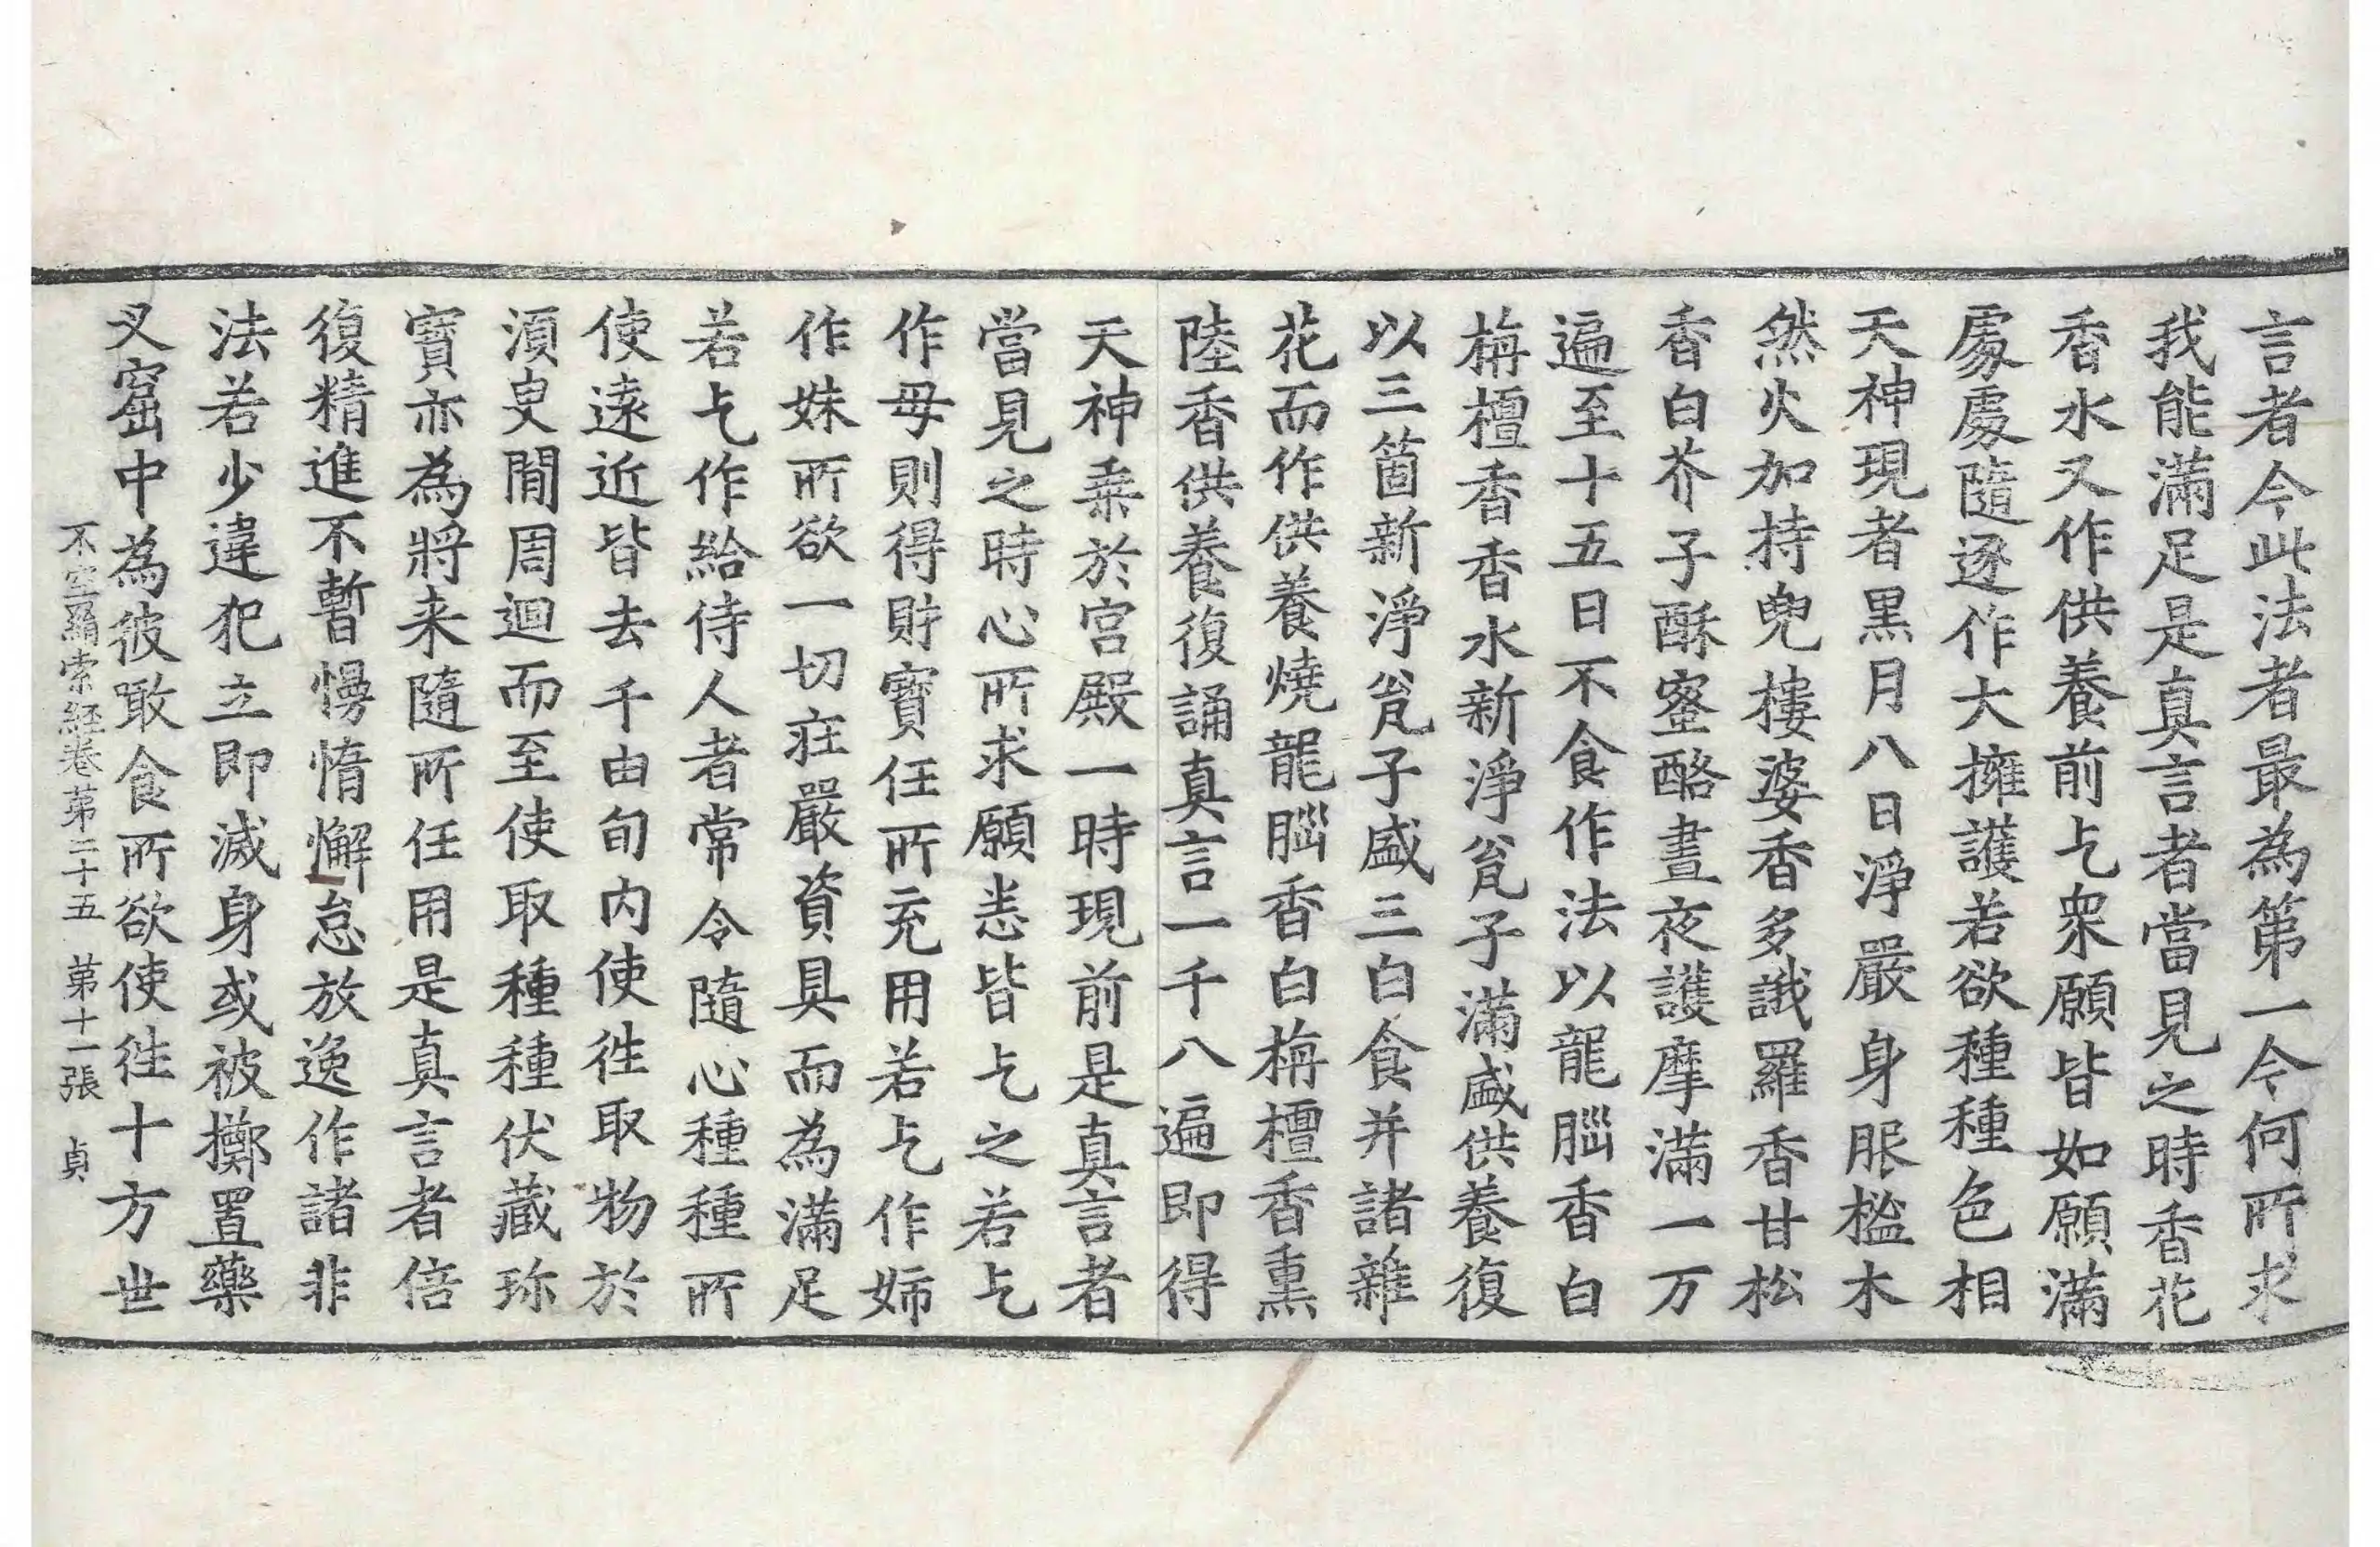 言者今此法者最為第一今何所求
我能滿足是真言者當見之時香花
香水又作供養前乞衆願皆如願滿
處處隨逐作大擁護若欲種種色相
天神現者黑月八日淨嚴身服檻木
然火加持兜樓婆香多誐羅香甘松
香白芥子酥蜜酪晝夜護摩滿一万
遍至十五日不食作法以龍腦香白
栴檀香香水新淨瓮子滿盛供養復
以三箇新淨瓮子盛三白食并諸雜
花而作供養燒龍腦香白栴檀香熏
陸香供養復誦真言一千八遍即得
天神乘於宮殿一時現前是真言者
當見之時心所求願悉皆乞之若乞
作母則得財寶任所充用若乞作姉
作妹所欲一切莊嚴資具而為滿足
若乞作給侍人者常令隨心種種所
使遠近皆去千由旬內使往取物於
須臾閒周迴而至使取種種伏藏珎
寶亦為將来隨所任用是真言者倍
復精進不暫慢惰懈怠放逸作諸非
法若少違犯立即滅身或被擲置藥
叉窟中為彼噉食所欲使往十方世
不空羂索経卷第二十五　第十一張　貞